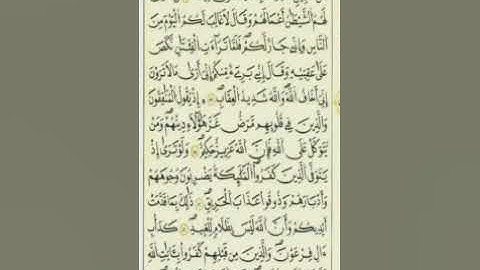 لَهُمُ ٱلشَّيْطَٰنُ أَعْمَٰلَهُمْ وَقَالَ لَا غَالِبَ لَكُمُ ٱلْيَوْمَ مِنَ
ٱلنَّاسِ وَإِنِّي جَارٌ لَّكُمْ فَلَمَّا تَرَآءَتِ ٱلْفِئَتَانِ نَكَصَ
عَلَىٰ عَقِبَيْهِ وَقَالَ إِنِّي بَرِيٓءٌ مِّنكُمْ إِنِّيٓ أَرَىٰ مَا لَا تَرَوْنَ
إِنِّيٓ أَخَافُ ٱللَّهَ وَٱللَّهُ شَدِيدُ ٱلْعِقَابِ إِذْ يَقُولُ ٱلْمُنَٰفِقُونَ
وَٱلَّذِينَ فِي قُلُوبِهِم مَّرَضٌ غَرَّ هَٰٓؤُلَآءِ دِينُهُمْ وَمَن
يَتَوَكَّلْ عَلَى ٱللَّهِ فَإِنَّ ٱللَّهَ عَزِيزٌ حَكِيمٌ وَلَوْ تَرَىٰٓ إِذْ
يَتَوَفَّى ٱلَّذِينَ كَفَرُوا۟ ٱلْمَلَٰٓئِكَةُ يَضْرِبُونَ وُجُوهَهُمْ
وَأَدْبَٰرَهُمْ وَذُوقُوا۟ عَذَابَ ٱلْحَرِيقِ ذَٰلِكَ بِمَا قَدَّمَتْ
أَيْدِيكُمْ وَأَنَّ ٱللَّهَ لَيْسَ بِظَلَّٰمٍ لِّلْعَبِيدِ كَدَأْبِ
ءَالِ فِرْعَوْنَ وَٱلَّذِينَ مِن قَبْلِهِمْ كَفَرُوا۟ بِـَٔايَٰتِ ٱللَّهِ